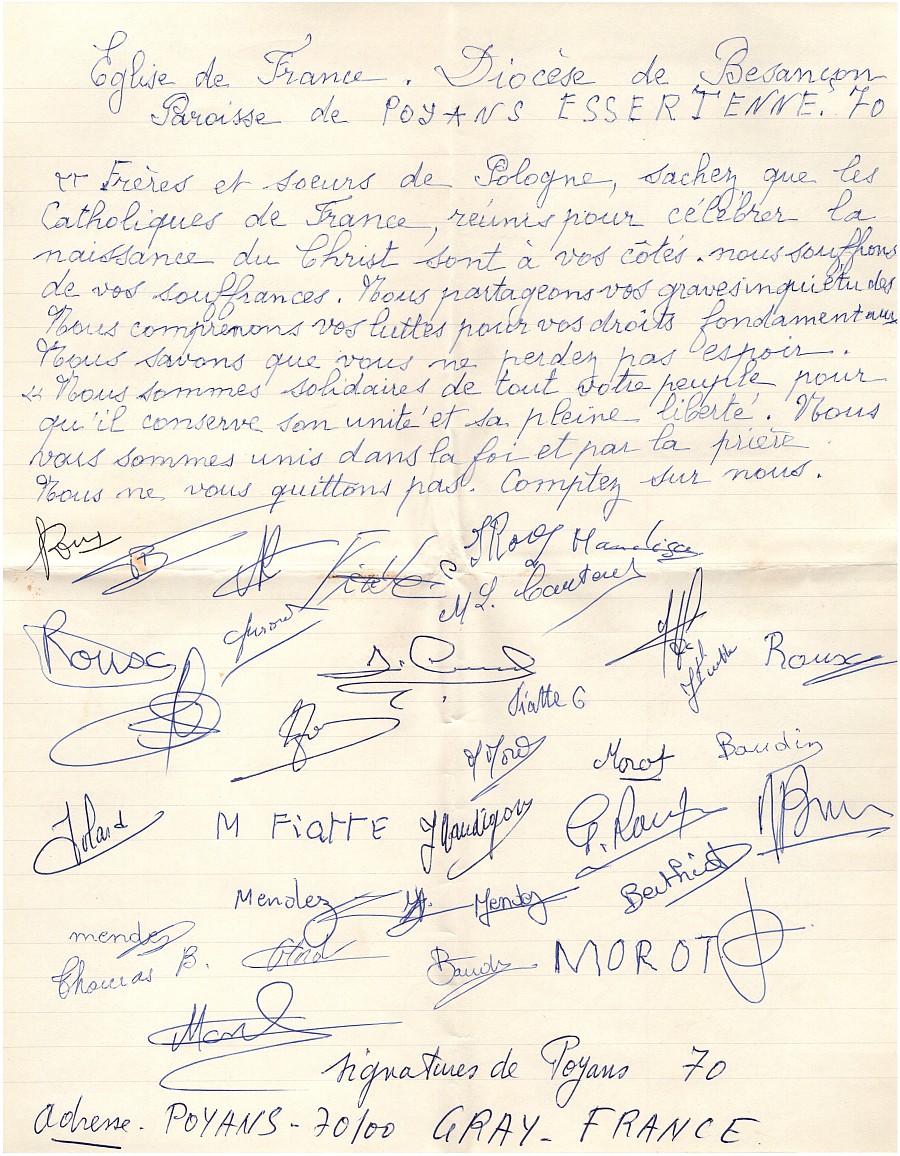 Église de France. Diocèse de Besançon
Paroisse de POYANS ESSERTENNE. 70
"Frères et soeurs de Pologne, sachez que les
Catholiques de France, réunis pour célébrer la
naissance du Christ sont à vos côtés. nous souffrons
de vos souffrances. Nous partageons vos graves inquiétudes
Nous comprenons vos luttes pour vos droits fondamentaux
Nous savons que vous ne perdez pas espoir.
"Nous sommes solidaires de tout votre peuple pour
qu'il conserve son unité et sa pleine liberté. Nous
vous sommes unis dans la foi et par la prière.
Nous ne vous quittons pas. Comptez sur nous.
Roux
Roux
Fiatte G
Roux
Morot Baudin
M FiaTTE G. Roux
Mendez Mendez Berthiot
mendez
Thomas B. Baudin MOROT
signatures de Poyans 70
adresse. POYANS - 70100 GRAY - FRANCE